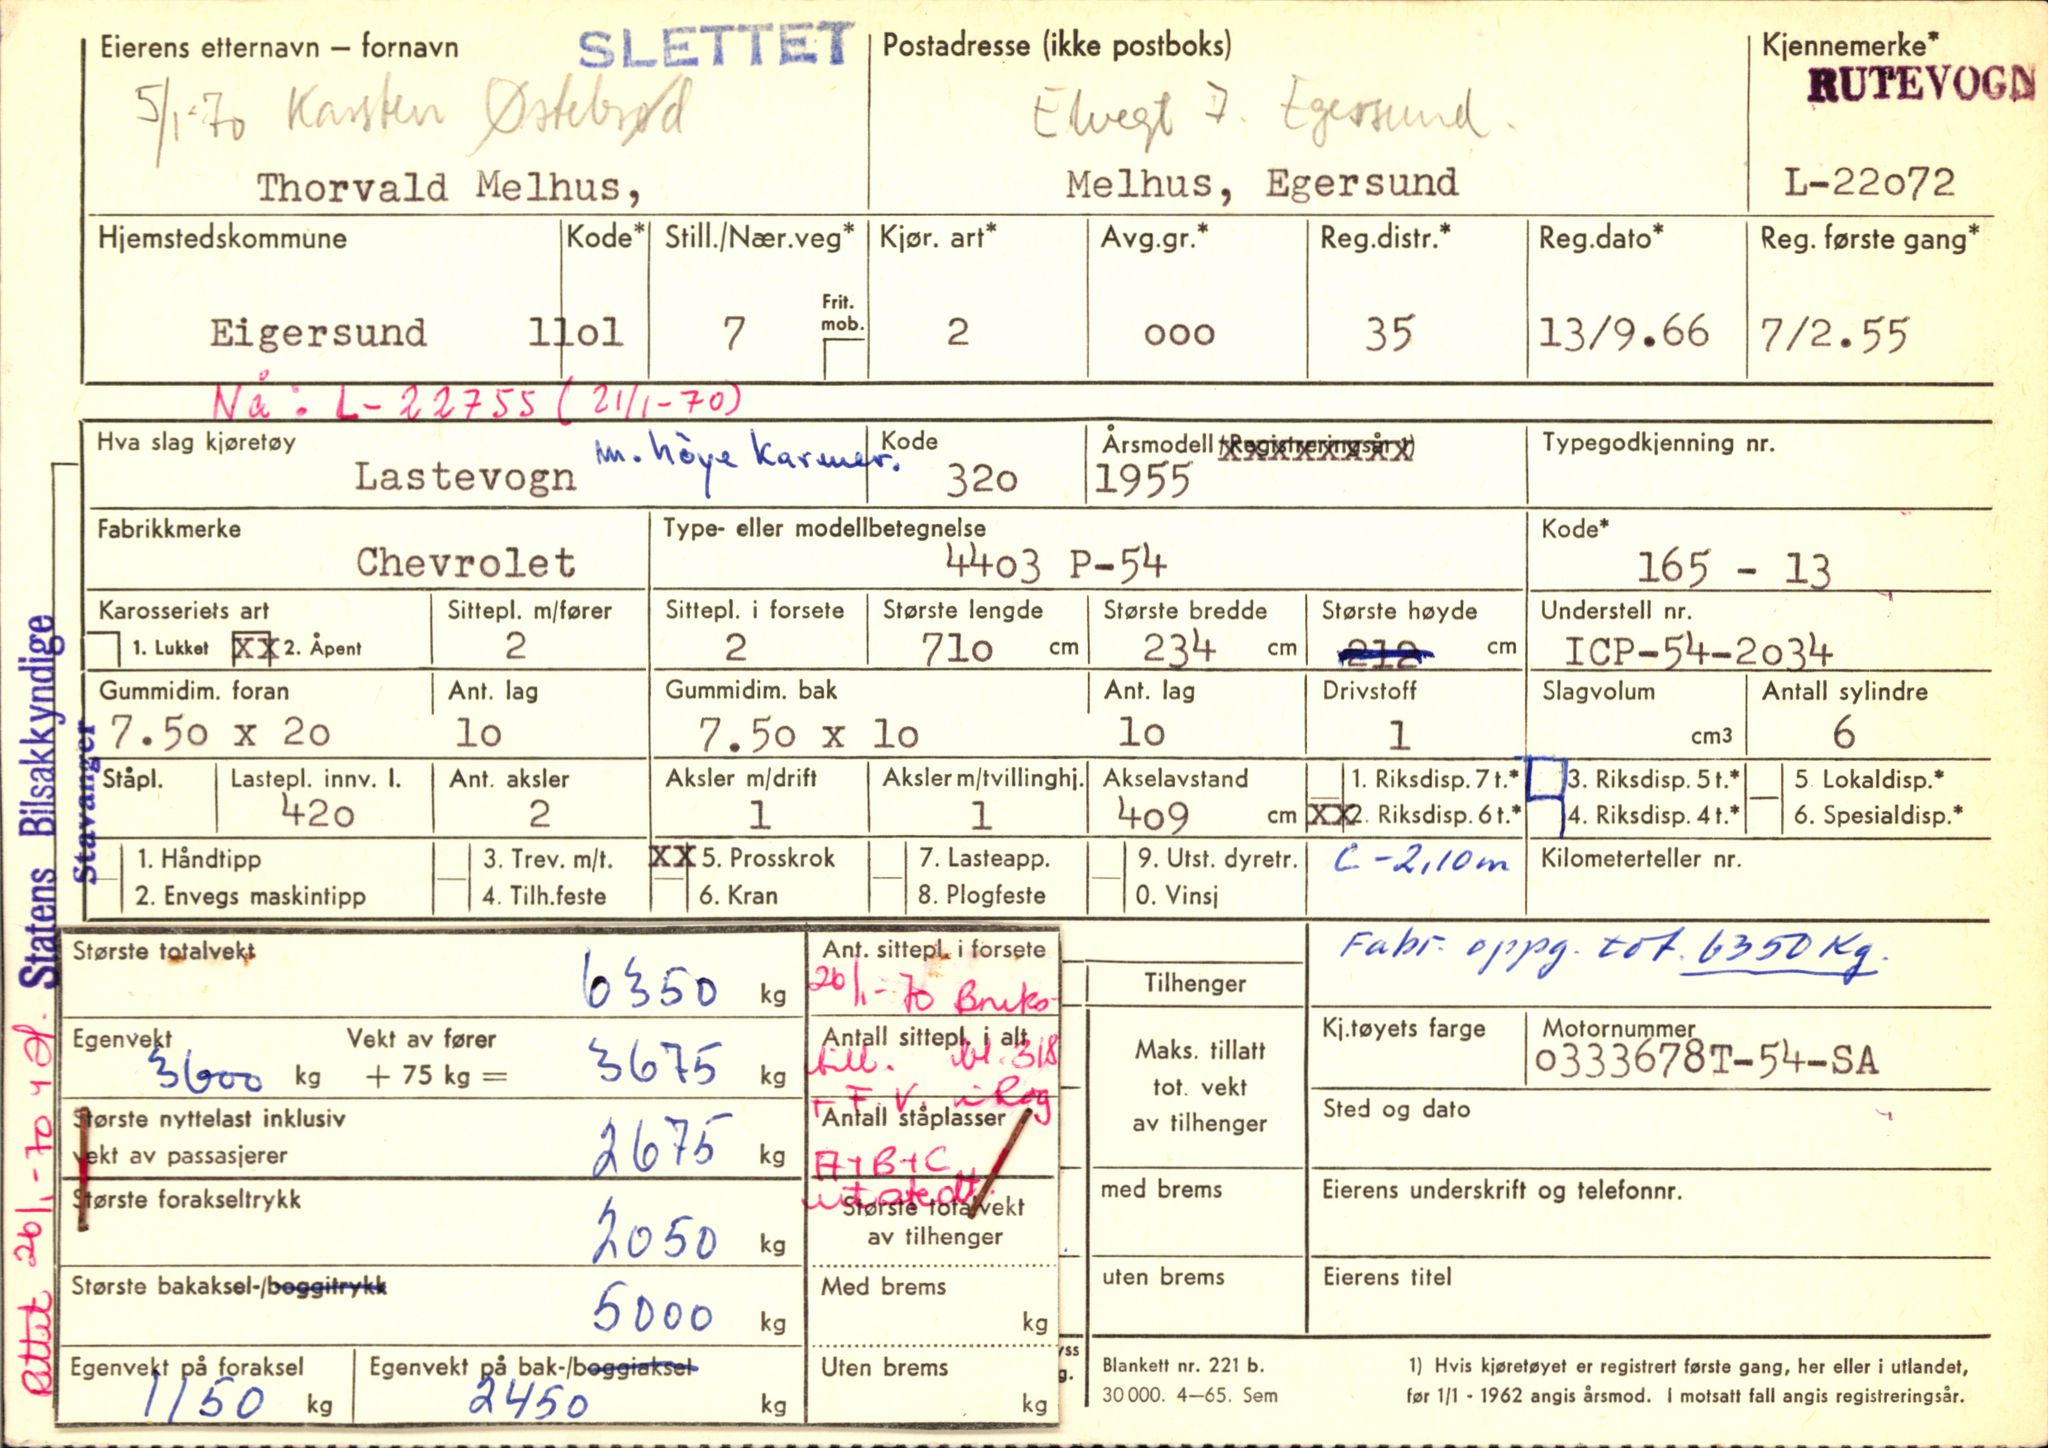 Eierens etternavn – fornavn SLETTET Postadresse (ikke postboks) Kjennemerke*
RUTEVOGN
5/1-70 Karsten Østebrød Elvegt 7. Egersund.
Thorvald Melhus, Melhus, Egersund L-22072
Hjemstedskommune Kode* Still./Nær.veg* Kjør. art* Avg.gr.* Reg.distr.* Reg.dato* Reg. første gang*
Frit. mob.
Eigersund 11o1 7 2 ooo 35 13/9.66 7/2.55
Nå: L-22755 (21/1-70)
Hva slag kjøretøy Kode Årsmodell (Registreringsår 1) Typegodkjenning nr.
Lastevogn m. høye Karmer. 32o 1955
Fabrikkmerke Type- eller modellbetegnelse Kode*
Chevrolet 44o3 P-54 165 - 13
Karosseriets art Sittepl. m/fører Sittepl. i forsete Største lengde Største bredde Største høyde Understell nr.
1. Lukket XX 2. Åpent 2 2 71o cm 234 cm 212 cm ICP-54-2o34
Gummidim. foran Ant. lag Gummidim. bak Ant. lag Drivstoff Slagvolum Antall sylindre
7.5o x 2o 1o 7.5o x 1o 1o 1 cm3 6
Ståpl. Lastepl. innv. l. Ant. aksler Aksler m/drift Aksler m/tvillinghj. Akselavstand 1. Riksdisp. 7 t.* 3. Riksdisp. 5 t.* 5. Lokaldisp.*
42o 2 1 1 4o9 cm XX 2. Riksdisp. 6 t.* 4. Riksdisp. 4 t.* 6. Spesialdisp.*
1. Håndtipp 3. Trev. m/t. XX 5. Prosskrok 7. Lasteapp. 9. Utst. dyretr. C-2,10m Kilometerteller nr.
2. Envegs maskintipp 4. Tilh.feste 6. Kran 8. Plogfeste 0. Vinsj
Statens Bilsakkyndige
Stavanger
Rettet 26/1-70
Største totalvekt 6350 kg
Egenvekt Vekt av fører
3600 kg + 75 kg = 3675 kg
Største nyttelast inklusiv
vekt av passasjerer 2675 kg
Største forakseltrykk 2050 kg
Største bakaksel-/boggitrykk 5000 kg
Egenvekt på foraksel Egenvekt på bak-/boggiaksel
1150 kg 2450 kg
Ant. sittepl. i forsete
26/1-70 Bruks-
Antall sittepl. i alt
till. bl. 318
F. V. i Rog
Antall ståplasser
A+B+C
utstedt.
Største totalvekt
av tilhenger
Med brems
kg
Uten brems
kg
Tilhenger
Maks. tillatt
tot. vekt
av tilhenger
med brems
uten brems
Fabr. oppg. tot. 6350 Kg.
Kj.tøyets farge Motornummer
o333678T-54-SA
Sted og dato
Eierens underskrift og telefonnr.
Eierens titel
Blankett nr. 221 b.
30 000. 4–65. Sem
1) Hvis kjøretøyet er registrert første gang, her eller i utlandet,
før 1/1 - 1962 angis årsmod. I motsatt fall angis registreringsår.